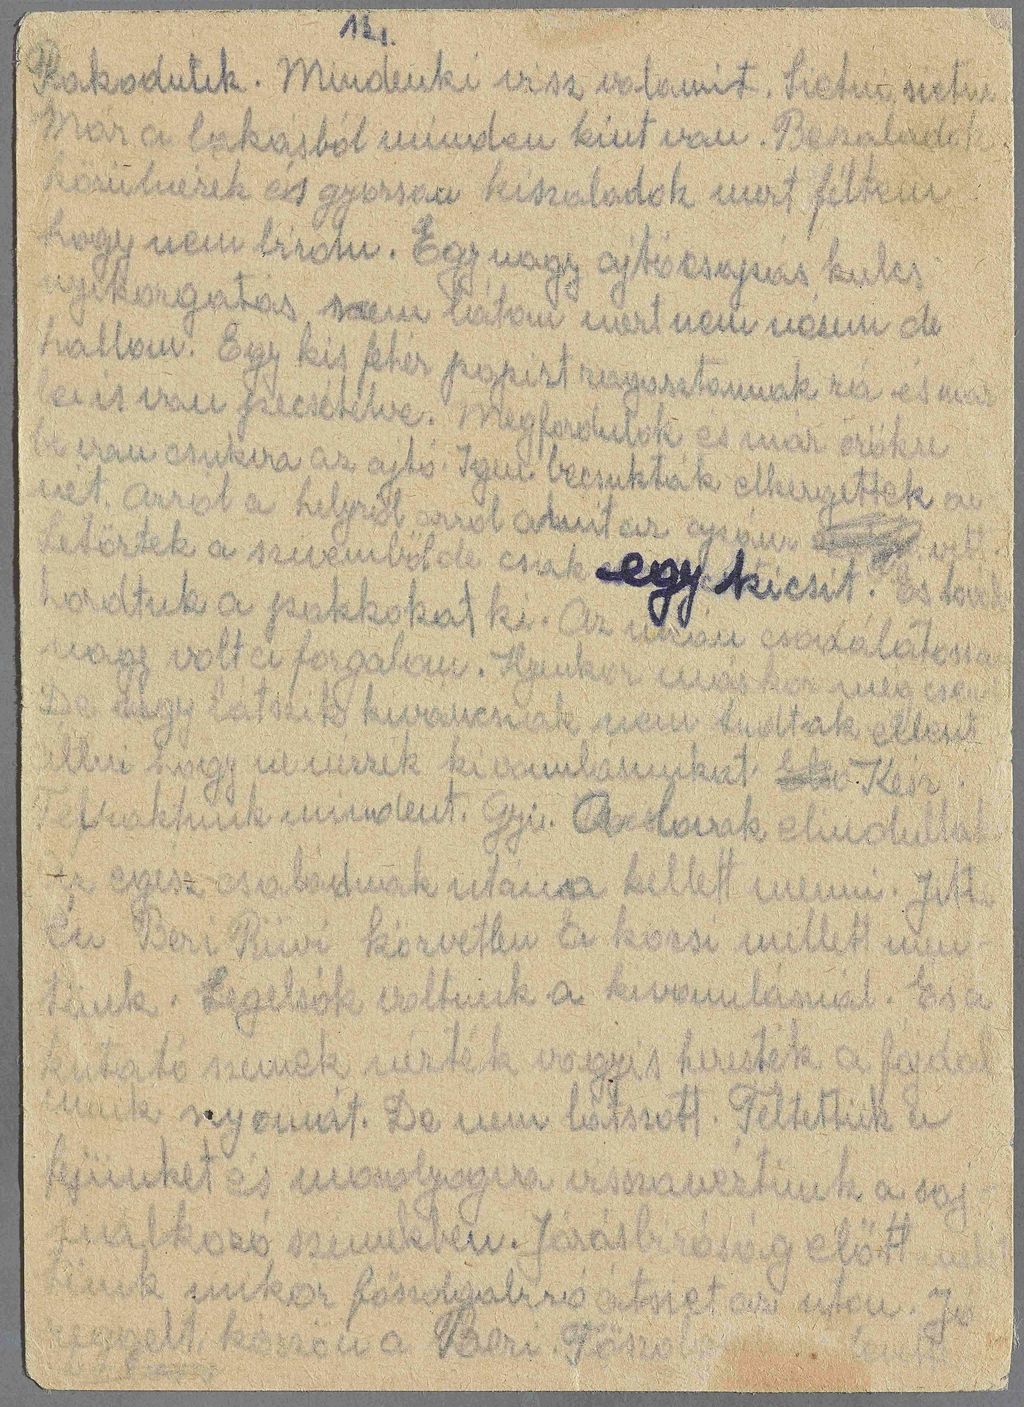 12.
Pakodunk. Mindenki visz valamit. Sietni, sietni
Már a lakásból minden kint van. Beszaladok
körülnézek és gyorsan kiszaladok mert féltem
hogy nem birom. Egy nagy ajtócsapás kulcs
nyikorgatás nem látom mert nem nézem de
hallom. Egy kis fehér papirt ragasztanak rá és már
le is van pecsételve. Megfordulok és már örökre
be van csukva az ajtó. Igen becsukták elkergettek
nét. Arrol a helyről arrol amit az apám vett.
Letörtek a szivemből de csak egy kicsit. És
hordtuk a pakkokat ki. Az utcán csodálatossan
nagy volt a forgalom. Ilyenkor máskor még csend
De úgy látszik kiváncsiak nem tudtak ellent
állni hogy ne nézzék kivonulásunkat. Kész.
Felraktunk mindent. Gyi. A lovak elindultak
Az egész családnak utána kellett menni. Jutti
én Beri Rüvi közvetlen a kocsi mellett men-
tünk. Legelsők voltunk a kivonulásnál. És a
kutató szemek nézték vagyis keresték a fájdal
munk nyomát. De nem látszott. Feltettük a
fejünket és mosolyogva visszanéztünk a saj-
nálkozó szemekben. Járásbiróság előtt
tünk mikor főszolgabiró átsiet az uton. Jó
reggelt köszön a Beri.